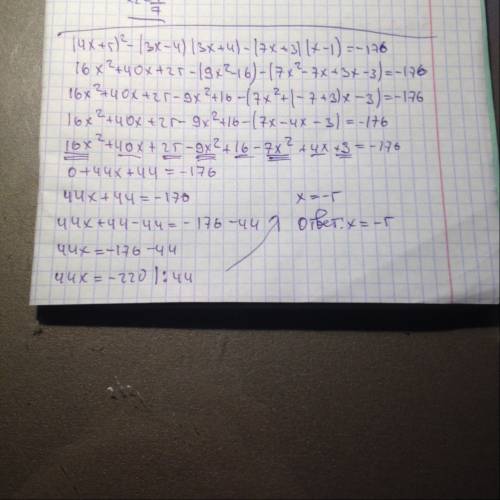 (4x+5)²-(3x-4)(3x+4)-(7x+3)(x-1)=-176
16x²+40x+25-(9x²-16)-(7x²-7x+3x-3)=-176
16x²+40x+25-9x²+16-(7x²+(-7+3)x-3)=-176
16x²+40x+25-9x²+16-(7x-4x-3)=-176
16x²+40x+25-9x²+16-7x²+4x+3=-176
0+44x+44=-176
44x+44=-176
x=-5
44x+44-44=-176-44
Ответ: x=-5
44x=-176-44
44x=-220 |:44